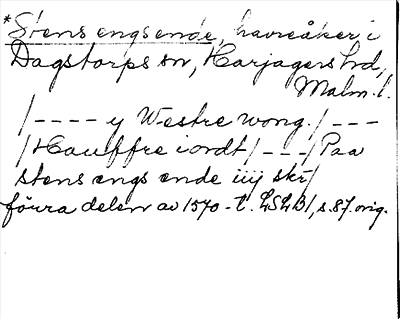 *Stens engs ende, havreåker i
Dagstorps sn, Harjagers hd,
Malm. l.
/---- y Westre wong./---
/Hauffre iordt/---/Paa
stens engs ende iiij skr/
förra delen av 1570-t. LSLB1, s.87. orig.